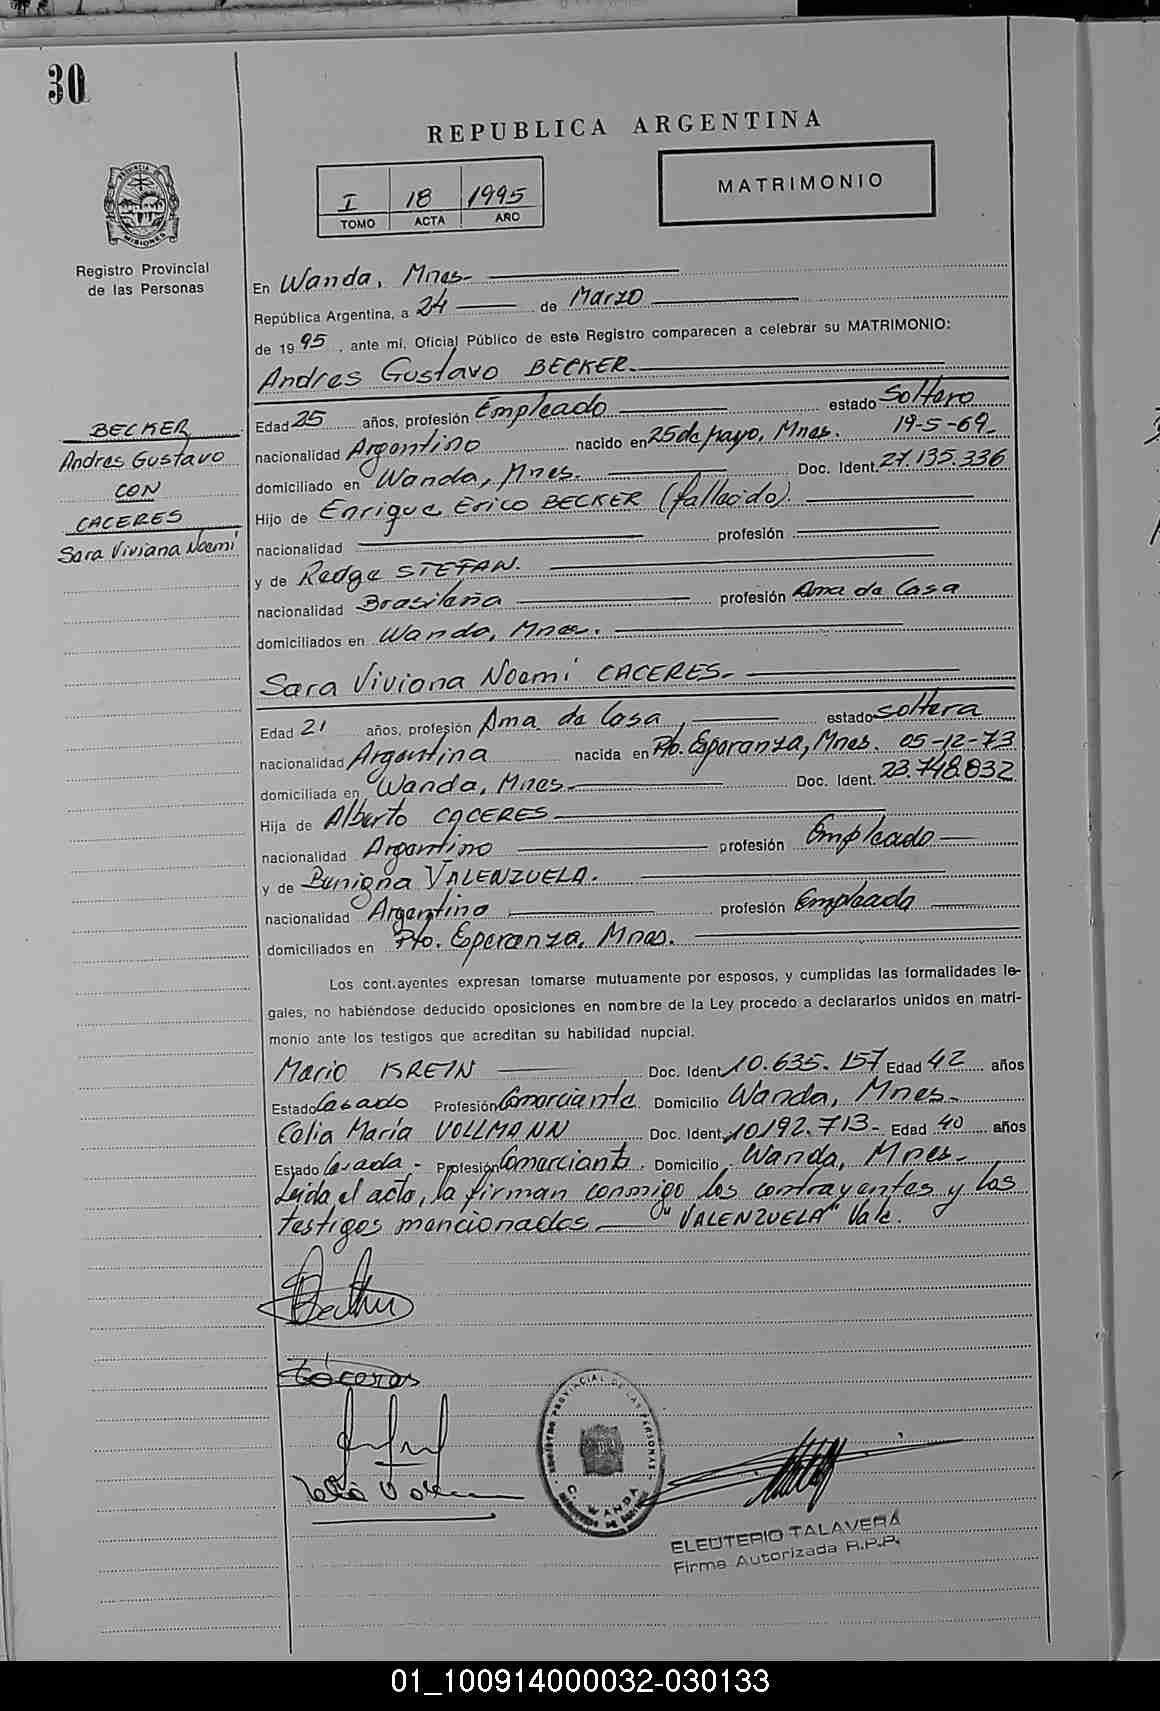 30
REPUBLICA ARGENTINA
I 18 1995
TOMO ACTA AÑO
MATRIMONIO
PROVINCIA
MISIONES
Registro Provincial
de las Personas
En Wanda, Mnes.
República Argentina, a 24 de Marzo
de 1995, ante mí, Oficial Público de este Registro comparecen a celebrar su MATRIMONIO:
Andres Gustavo BECKER.
Edad 25 años, profesión Empleado estado Soltero
nacionalidad Argentino nacido en 25 de Mayo, Mnes. 19-5-69.
domiciliado en Wanda, Mnes. Doc. Ident. 21.135.336
Hijo de Enrique Erico BECKER (fallecido).
nacionalidad profesión
y de Redge STEFAN.
nacionalidad Brasileña profesión Ama de Casa
domiciliados en Wanda, Mnes.
BECKER
Andres Gustavo
CON
CACERES
Sara Viviana Noemi
Sara Viviana Noemi CACERES.
Edad 21 años, profesión Ama de Casa, estado soltera
nacionalidad Argentina nacida en Pto. Esperanza, Mnes. 05-12-73
domiciliada en Wanda, Mnes. Doc. Ident. 23.748.832
Hija de Alberto CACERES
nacionalidad Argentino profesión Empleado
y de Benigna VALENZUELA.
nacionalidad Argentino profesión Empleada
domiciliados en Pto. Esperanza, Mnes.
Los contrayentes expresan tomarse mutuamente por esposos, y cumplidas las formalidades le-
gales, no habiéndose deducido oposiciones en nombre de la Ley procedo a declararlos unidos en matri-
monio ante los testigos que acreditan su habilidad nupcial.
Mario KREIN Doc. Ident. 10.635.157 Edad 42 años
Estado Casado Profesión Comerciante Domicilio Wanda, Mnes.
Celia María VOLLMANN Doc. Ident. 10192.713- Edad 40 años
Estado Casada - Profesión Comerciante. Domicilio Wanda, Mnes.
Leida el acta, la firman conmigo los contrayentes y los
testigos mencionados "VALENZUELA" Vale.
Cáceres
REGISTRO PROVINCIAL DE LAS PERSONAS
WANDA
ELEUTERIO TALAVERA
Firma Autorizada R.P.P.
01_100914000032-030133